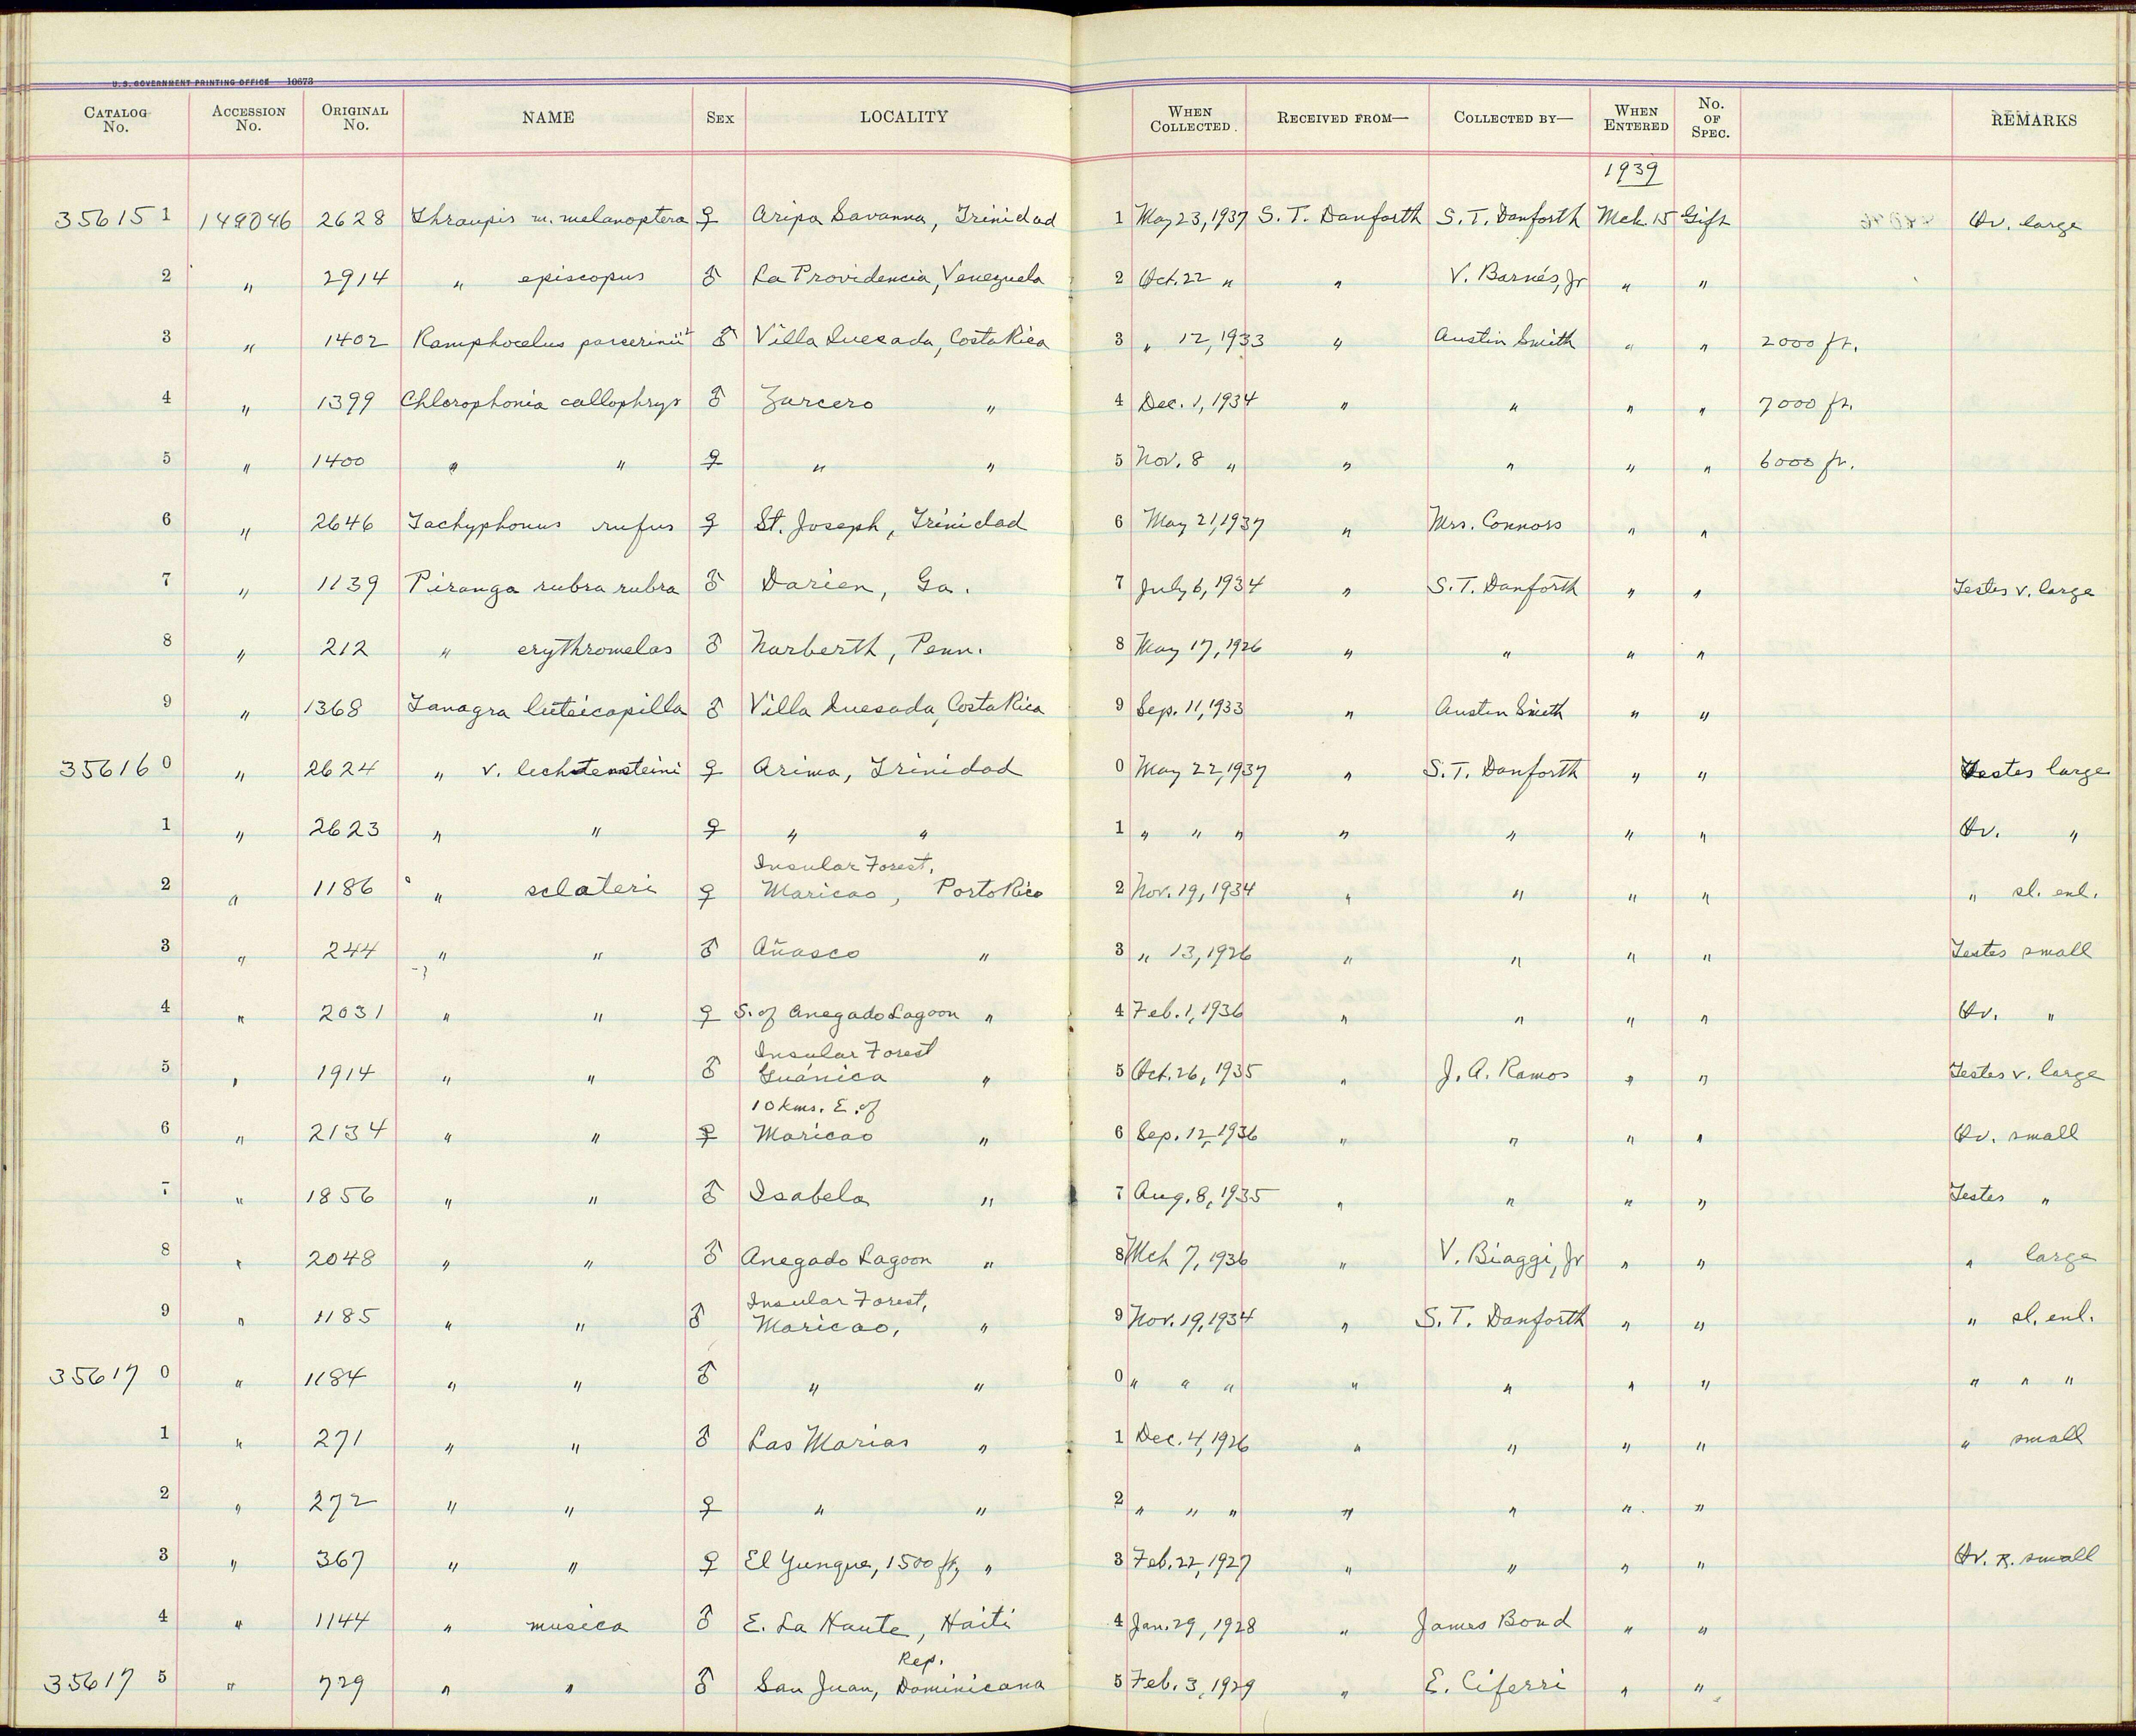 U.S. GOVERNMENT PRINTING OFFICE 10673
CATALOG No. ACCESSION No. ORIGINAL No. NAME SEX LOCALITY WHEN COLLECTED. RECEIVED FROM— COLLECTED BY— WHEN ENTERED No. OF SPEC. REMARKS
1939
35615 1 149046 2628 Thraupis m. melanoptera ♀ Aripa Savanna, Trinidad 1 May 23, 1937 S. T. Danforth S. T. Danforth Mch. 15 Gift Ov. large
2 " 2914 " episcopus ♂ La Providencia, Venezuela 2 Oct. 22 " " V. Barnés, Jr " "
3 " 1402 Ramphocelus passerinii ♂ Villa Quesada, Costa Rica 3 " 12, 1933 " Austin Smith " " 2000 ft.
4 " 1399 Chlorophonia callophrys ♂ Zarcero " 4 Dec. 1, 1934 " " " " 7000 ft.
5 " 1400 " " ♀ " " 5 Nov. 8 " " " " " 6000 ft.
6 " 2646 Tachyphonus rufus ♀ St. Joseph, Trinidad 6 May 21, 1937 " Mrs. Connors " "
7 " 1139 Piranga rubra rubra ♂ Darien, Ga. 7 July 6, 1934 " S. T. Danforth " " Testes v. large
8 " 212 " erythromelas ♂ Narberth, Penn. 8 May 17, 1926 " " " "
9 " 1368 Tanagra luteicapilla ♂ Villa Quesada, Costa Rica 9 Sep. 11, 1933 " Austin Smith " "
35616 0 " 2624 " v. lichtensteini ♀ Arima, Trinidad 0 May 22, 1937 " S. T. Danforth " " Testes large
1 " 2623 " " ♀ " " 1 " " " " " " " Ov. "
Insular Forest,
2 " 1186 " sclateri ♀ Maricao, Porto Rico 2 Nov. 19, 1934 " " " " " sl. enl.
3 " 244 " " ♂ Añasco " 3 " 13, 1926 " " " " Testes small
4 " 2031 " " ♀ S. of Anegado Lagoon " 4 Feb. 1, 1936 " " " " Ov. "
Insular Forest
5 " 1914 " " ♂ Guánica " 5 Oct. 26, 1935 " J. A. Ramos " " Testes v. large
10 kms. E. of
6 " 2134 " " ♀ Maricao " 6 Sep. 12, 1936 " " " " Ov. small
7 " 1856 " " ♂ Isabela " 7 Aug. 8, 1935 " " " " Testes "
8 " 2048 " " ♂ Anegado Lagoon " 8 Mch 7, 1936 " V. Biaggi, Jr " " " large
Insular Forest,
9 " 1185 " " ♂ Maricao, " 9 Nov. 19, 1934 " S. T. Danforth " " " sl. enl.
35617 0 " 1184 " " ♂ " " 0 " " " " " " " " " "
1 " 271 " " ♂ Las Marias " 1 Dec. 4, 1926 " " " " " small
2 " 272 " " ♀ " " 2 " " " " " " "
3 " 367 " " ♀ El Yunque, 1500 ft, " 3 Feb. 22, 1927 " " " " Ov. R. small
4 " 1144 " musica ♂ E. La Haute, Haiti 4 Jan. 29, 1928 " James Bond " "
Rep.
35617 5 " 729 " " ♂ San Juan, Dominicana 5 Feb. 3, 1929 " E. Ciferri " "